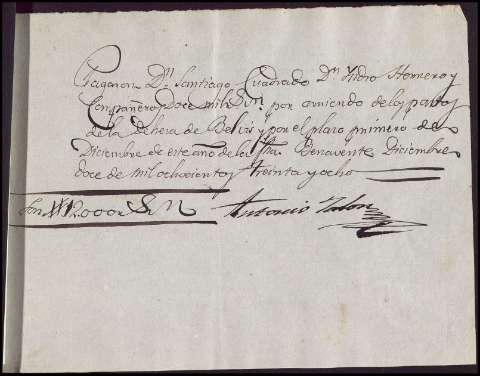 Pagaron Dn. Santiago Cuadrado Dn. Ysidro Homero y
Compañeros Doce mil Rs. Vn. por arriendo de los pastos
de la Dehesa de Belvis y por el plazo primero de
Diciembre de este año de la fha. Benavente Diciembre
doce de mil ochocientos treinta y ocho
Son 12000 Rs. Vn Antonio